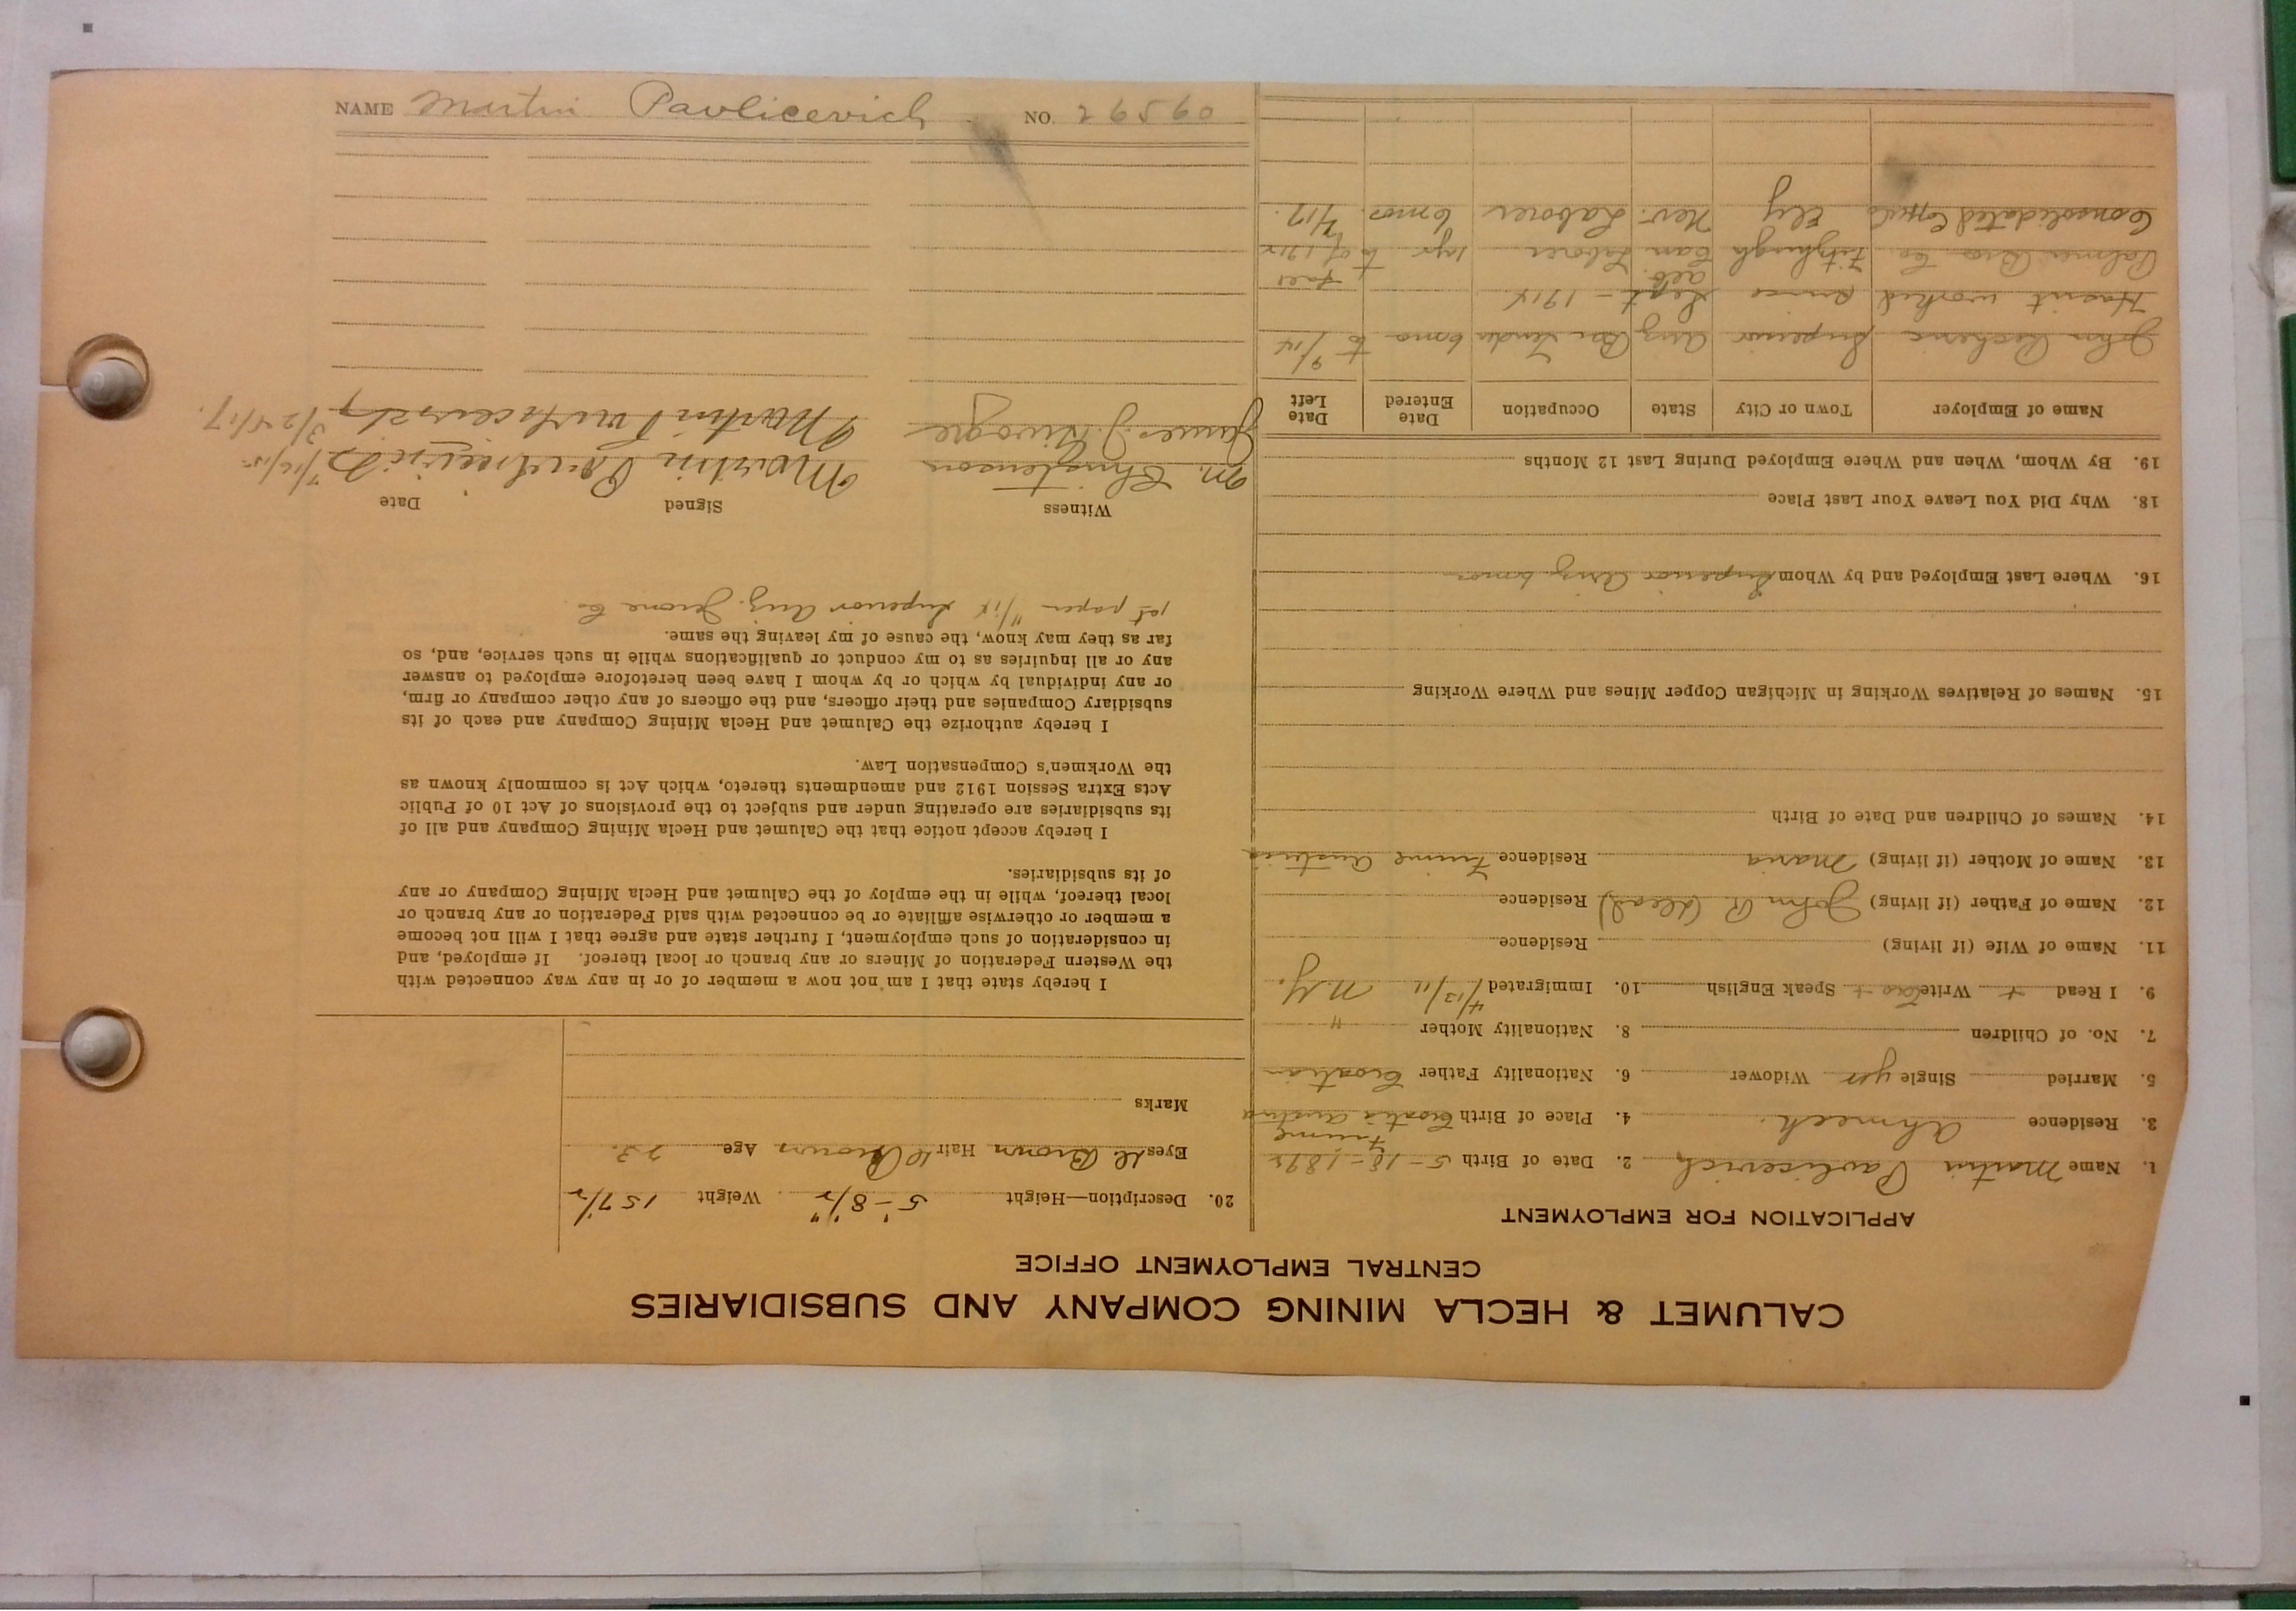 CALUMET & HECLA MINING COMPANY AND SUBSIDIARIES
CENTRAL EMPLOYMENT OFFICE
APPLICATION FOR EMPLOYMENT
1. Name Martin Pavlicevich 2. Date of Birth 5-18-1892
Fiume
3. Residence Ahmeek. 4. Place of Birth Croatia Austria
5. Married Single yes Widower 6. Nationality Father Croatian
7. No. of Children 8. Nationality Mother "
9. I Read + Write Cro + Speak English 10. Immigrated 4/13/11 N.Y.
11. Name of Wife (if living) Residence
12. Name of Father (if living) John P. (dead) Residence
13. Name of Mother (if living) Maria Residence Fiume Austria
14. Names of Children and Date of Birth
15. Names of Relatives Working in Michigan Copper Mines and Where Working
16. Where Last Employed and by Whom Superior Ariz 6 mos
18. Why Did You Leave Your Last Place
19. By Whom, When and Where Employed During Last 12 Months
Name of Employer Town or City State Occupation Date Entered Date Left
John Superior Ariz Bar Tender 6 mo to 9/14
Hasn't worked since Sept - 1914
Palmer Bros Co Fitzhugh Alb. Can Laborer 1 yr to Fall of 1912
Consolidated Copper Co Ely Nev. Laborer 6 mos. 2/17.
20. Description—Height 5'-8 1/2" Weight 157 1/2
Eyes Brown Hair Brown Age 23.
Marks
I hereby state that I am not now a member of or in any way connected with
the Western Federation of Miners or any branch or local thereof. If employed, and
in consideration of such employment, I further state and agree that I will not become
a member or otherwise affiliate or be connected with said Federation or any branch or
local thereof, while in the employ of the Calumet and Hecla Mining Company or any
of its subsidiaries.
I hereby accept notice that the Calumet and Hecla Mining Company and all of
its subsidiaries are operating under and subject to the provisions of Act 10 of Public
Acts Extra Session 1912 and amendments thereto, which Act is commonly known as
the Workmen's Compensation Law.
I hereby authorize the Calumet and Hecla Mining Company and each of its
subsidiary Companies and their officers, and the officers of any other company or firm,
or any individual by which or by whom I have been heretofore employed to answer
any or all inquiries as to my conduct or qualifications while in such service, and, so
far as they may know, the cause of my leaving the same.
1st paper 4/14 Superior Ariz.
Witness Signed Date
M. Christenson Martin Pavlicevich 7/16/15
James J. Martin Pavlicevich 3/24/17.
NAME Martin Pavlicevich NO. 29590